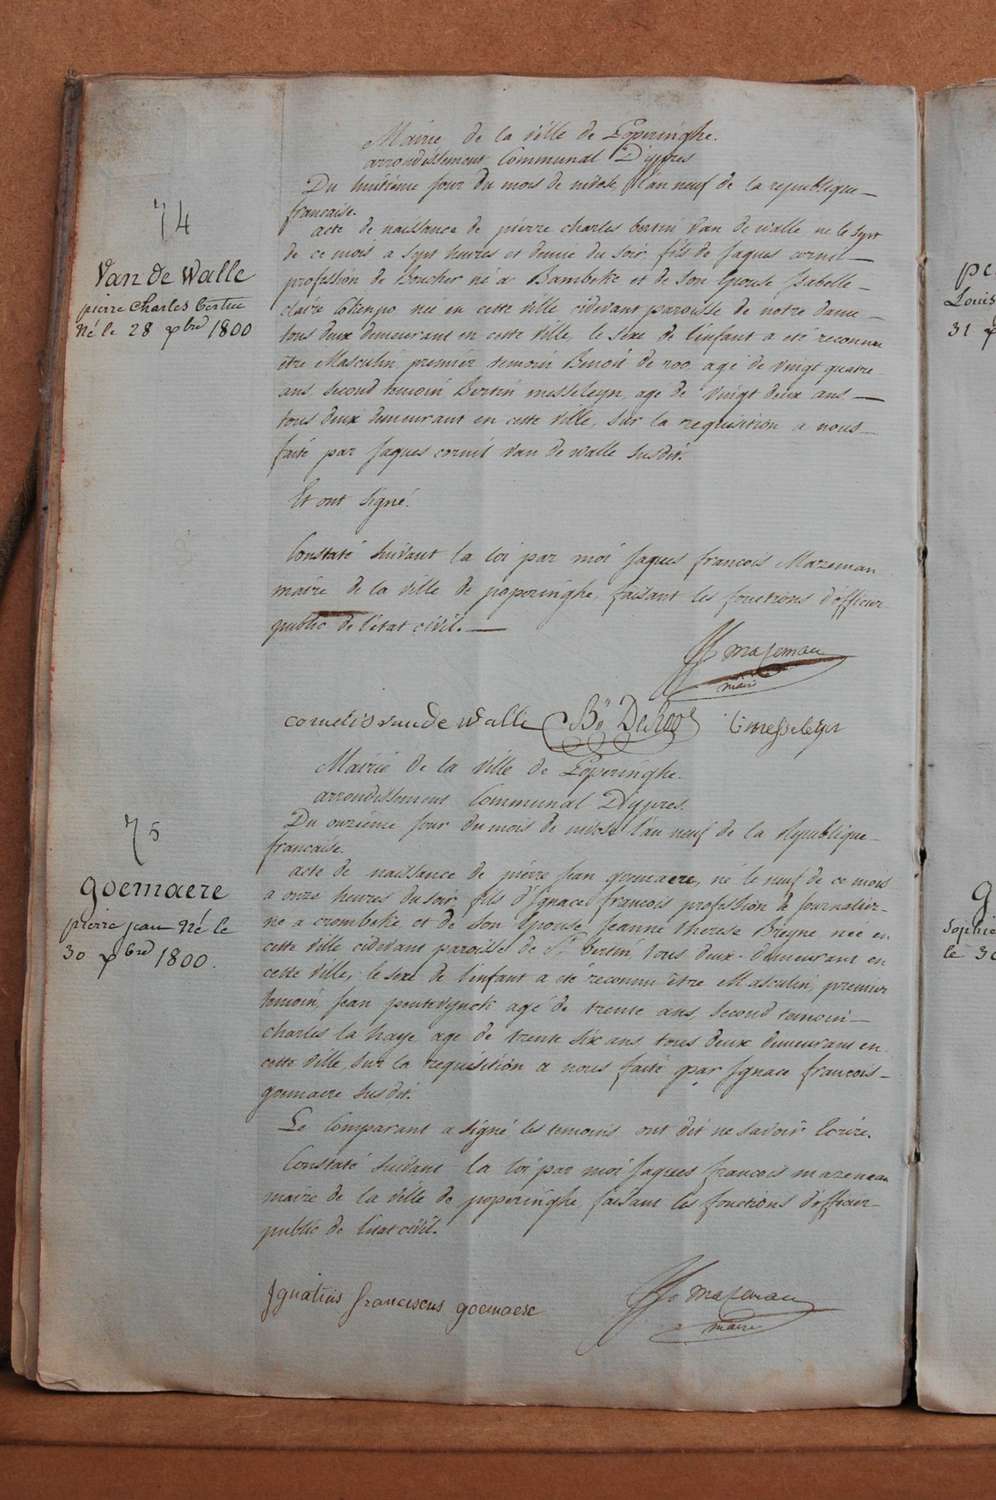 74
Van de Walle
pierre Charles bertin
Né le 28 xbre 1800
Mairie de la ville de Poperinghe.
arrondissement Communal D'ypres
Du huitième jour du mois de nivôse l'an neuf de la republique
francaise.
acte de naissance de pierre charles bertin Van de walle né le sept
de ce mois a sept heures et demie du soir fils de Jaques cornil
profession de Boucher né a Bambeke et de Son Epouse Isabelle
claire née en cette ville cidevant paroisse de notre dame
tous deux demeurant en cette ville, le Sexe de l'enfant a été reconnu
être Masculin premier temoin Benoit de roo agé de vingt quatre
ans Second temoin Bertin messeleyn, age de vingt deux ans
tous deux demeurant en cette ville, Sur la requisition a nous
faite par Jaques cornil Van de walle Susdit.
Et ont Signé.
Constaté Suivant la loi par moi Jaques francois Mazeman
maire de la ville de poperinghe, faisant les fonctions d'officier
public de l'état civil.
JF mazeman
maire
cornelis vande Walle Bn De Roo b messeleyn
75
goemaere
pierre jean Né le
30 xbre 1800
Mairie de la ville de Poperinghe.
arrondissement Communal D'ypres.
Du onzième jour du mois de nivose l'an neuf de la republique
francaise.
acte de naissance de pierre Jean gomaere, né le neuf de ce mois
a onze heures du soir fils d'Ignace francois profession de journalier
né a crombeke et de Son Epouse Jeanne therese Breyne née en
cette ville cidevant paroisse de St bertin tous deux demeurant en
cette ville, le sexe de l'enfant a ete reconnu être Masculin, premier
temoin, Jean agé de trente ans Second temoin
charles la haye age de trente Six ans tous deux demeurans en
cette ville, Sur la requisition a nous faite par Ignace francois
gomaere Susdit.
Le Comparant a signé les temoins ont dit ne Savoir Ecrire.
Constaté Suivant la loi par moi Jaques francois mazeman
maire de la ville de poperinghe, faisant les fonctions d'officier
public de l'etat civil.
Ignatius franciscus goemaere
JF mazeman
maire
Louis
31
Sophie
le 30